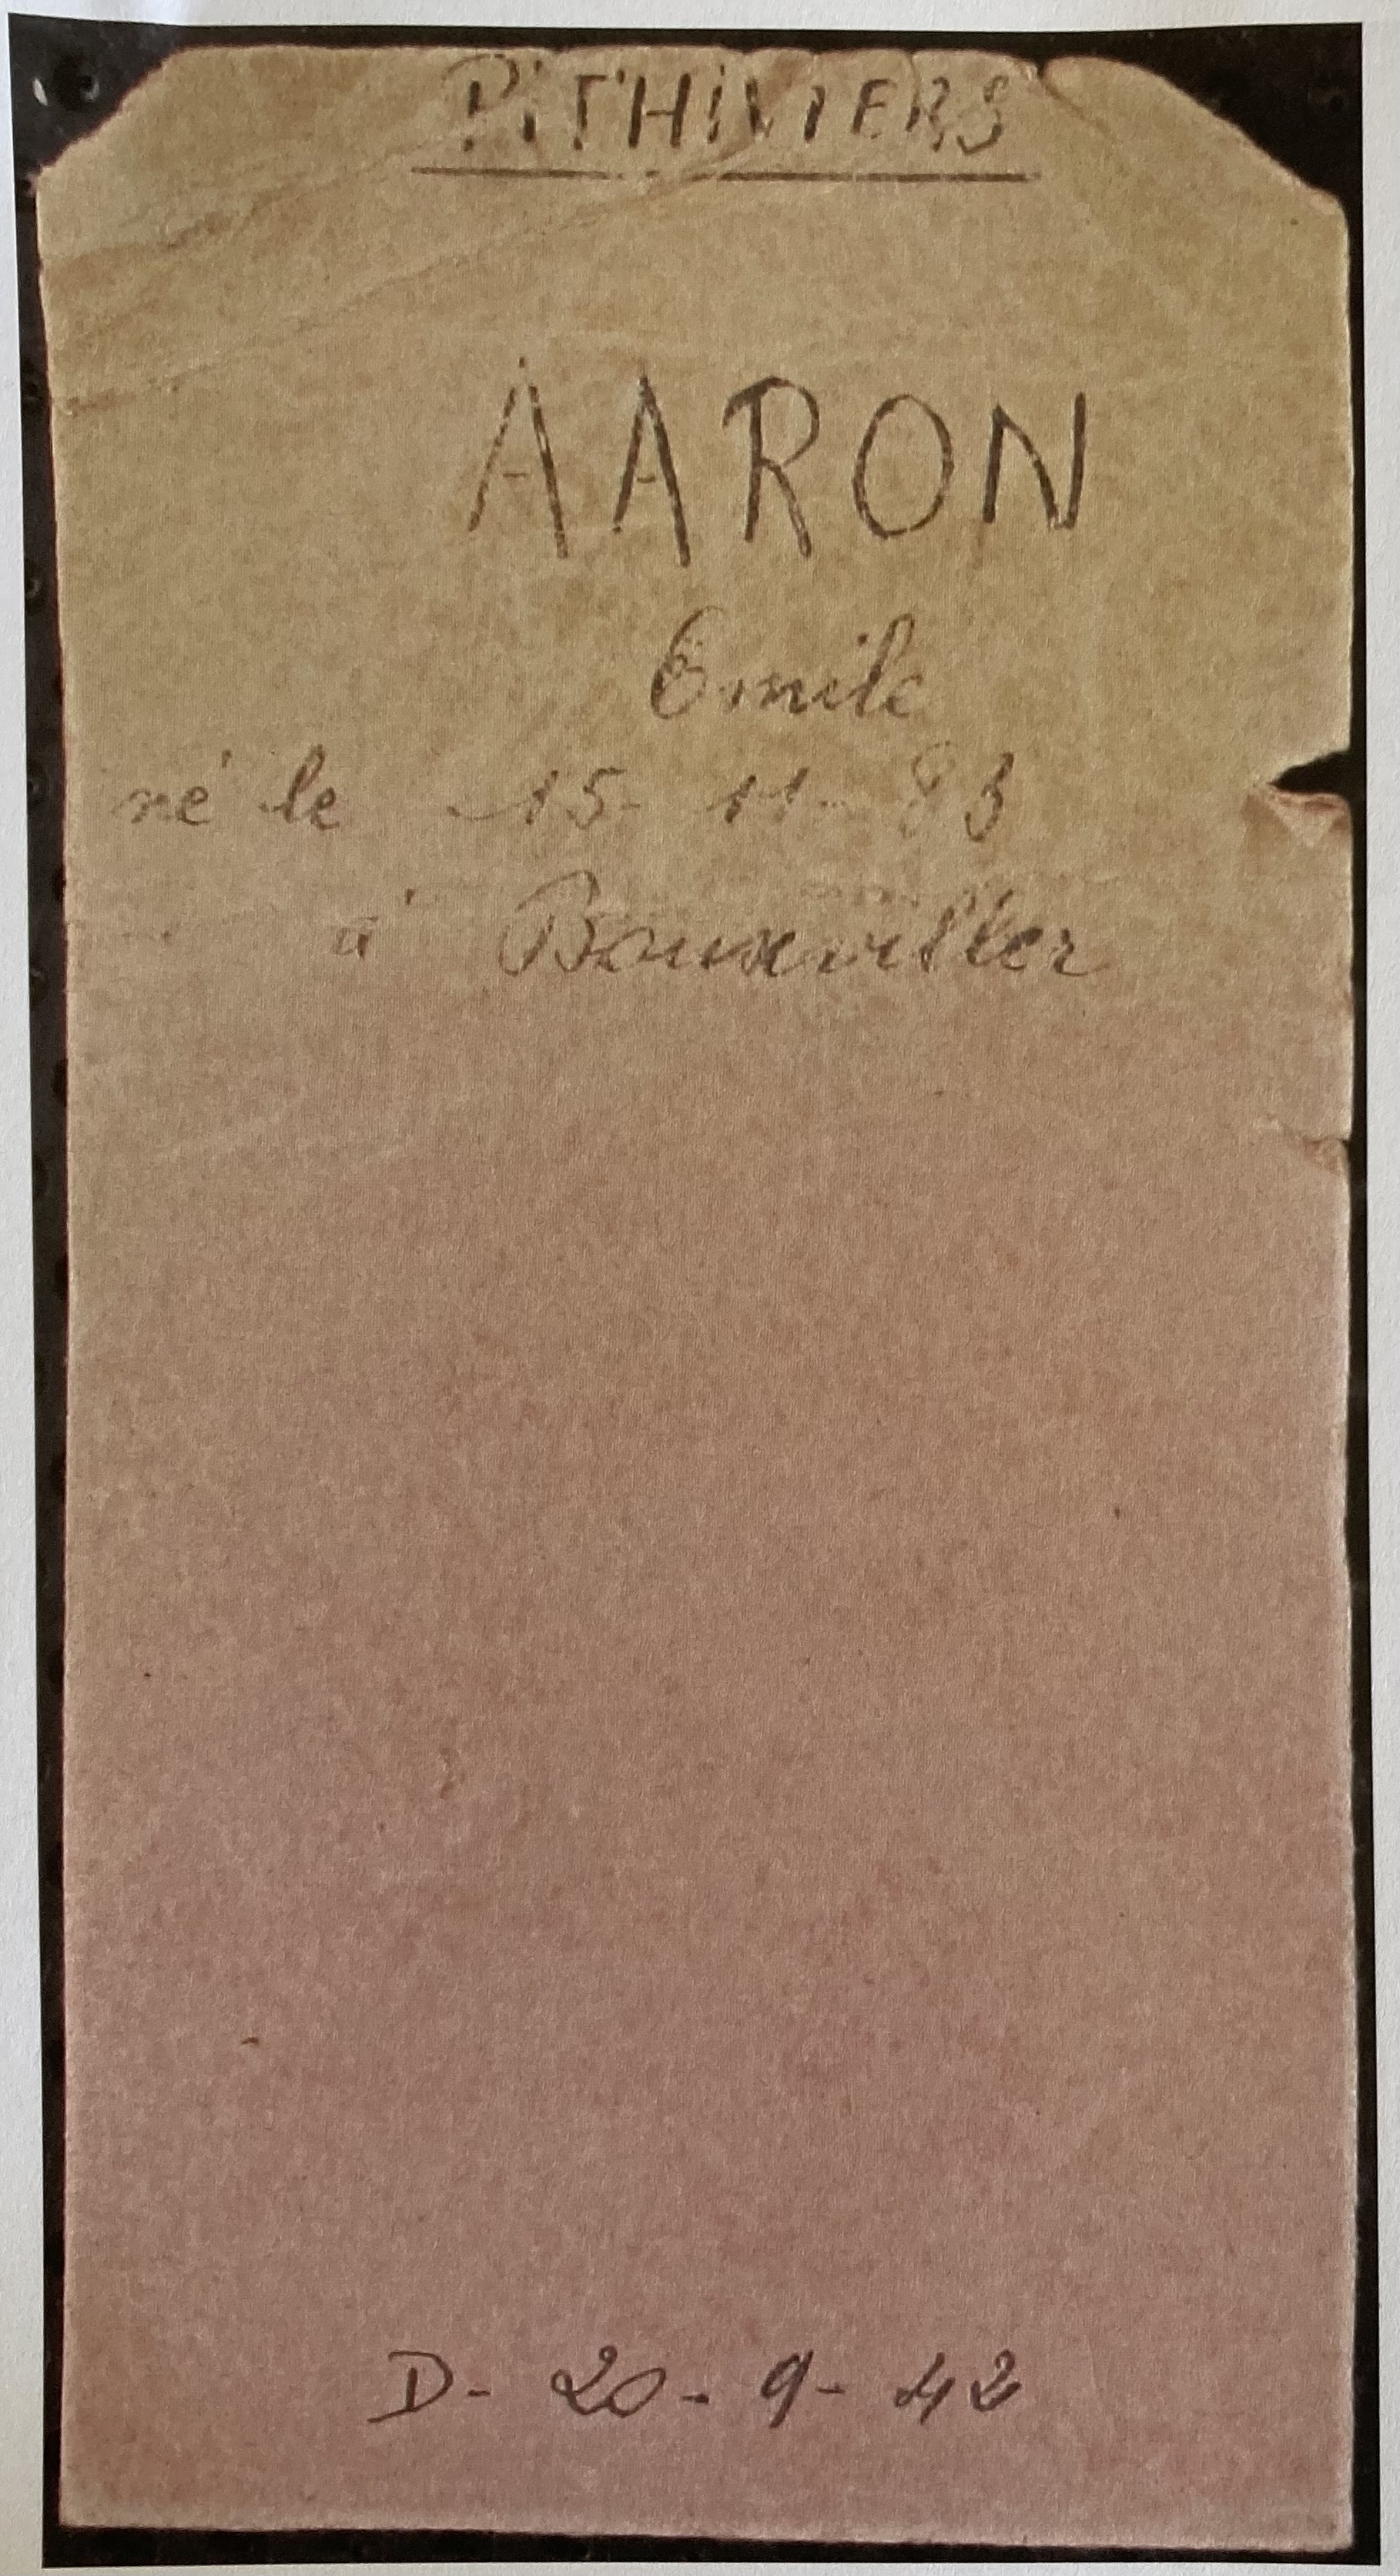 PITHIVIERS
AARON
Emile
né le 15-11-83
à Bouxviller
D- 20-9-42